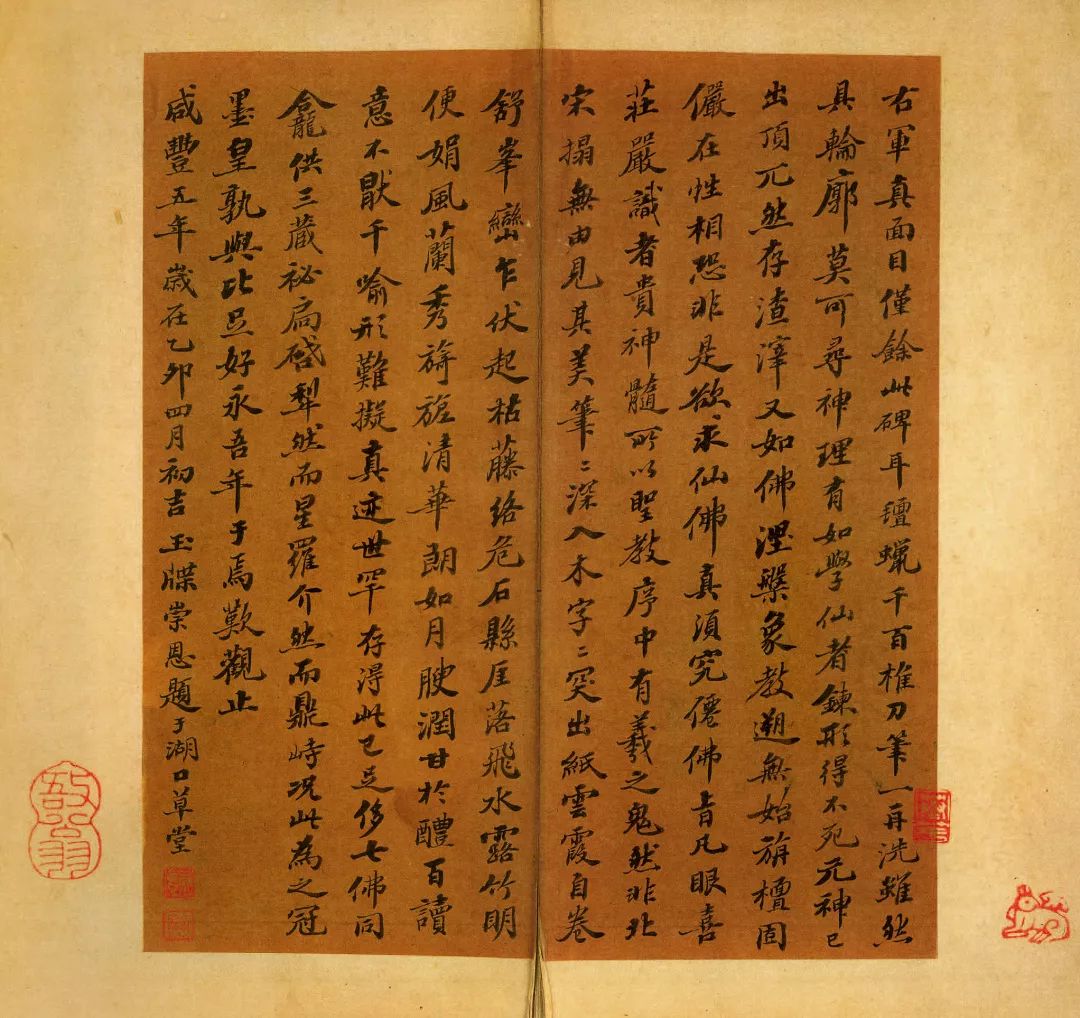 右軍真面目僅餘此碑耳氊蠟千百椎刀筆一再洗雖然
具輪廓莫可尋神理有如學仙者鍊形得不死元神已
出頂兀然存渣滓又如佛涅槃象教遡無始旃檀固
儼在性相恐非是欲求仙佛真須究僊佛旨凡眼喜
莊嚴識者貴神髓所以聖教序中有羲之鬼然非北
宋搨無由見其美筆〻深入木字〻突出紙雲霞自卷
舒峯巒乍伏起枯藤络危石縣厓落飛水露竹明
便娟風蘭秀旖旎清華朗如月腴潤甘於醴百讀
意不猒千喻形難擬真迹世罕存得此已足侈七佛同
龕供三藏祕扃啓犁然而星羅介然而鼎峙况此為之冠
墨皇孰與比足好永吾年于焉歎觀止
咸豐五年歲在乙卯四月初吉玉牒崇恩題于湖口草堂